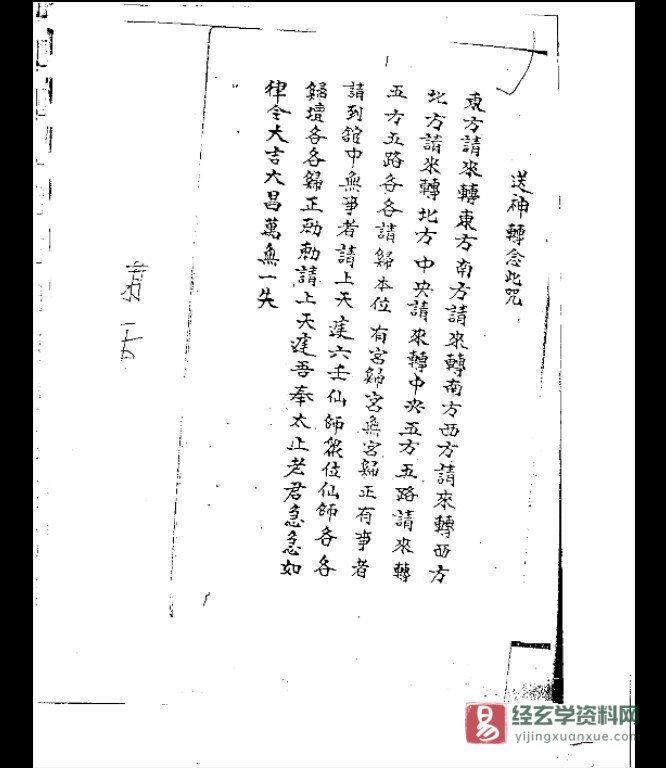 送神轉念此咒
東方請來轉東方南方請來轉南方西方請來轉西方
北方請來轉北方中央請來轉中央五方五路請來轉
五方五路各各請歸本位有宮歸宮無宮歸正有事者
請到舘中無事者請上天達六壬仙師衆位仙師各各
歸壇各各歸正勅勅請上天達吾奉太上老君急急如
律令大吉大昌萬無一失
易
经玄学资料网
yijingxuanxue.com